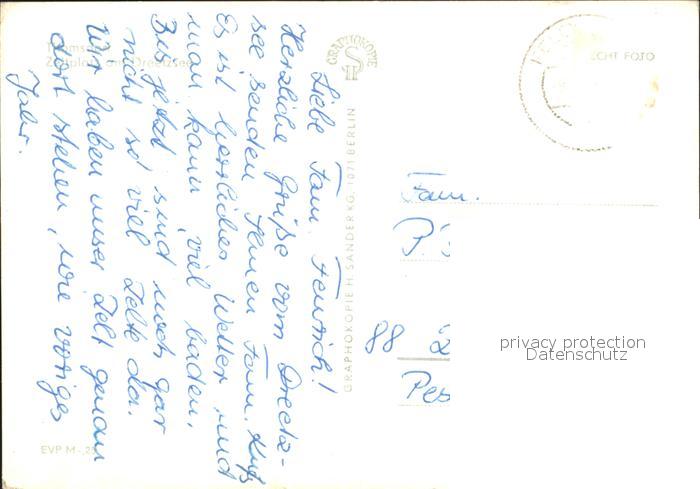 Thomsdorf
Zeltplatz am Dreetzsee
Liebe Fam. Fentrich!
Herzliche Grüße vom Dreetz-
see senden Ihnen Fam.
Es ist herrliches Wetter und
man kann viel baden.
Bis jetzt sind noch gar
nicht so viel Zelte da.
Wir haben unser Zelt genau
dort stehen, wie voriges
Jahr.
EVP M -,25
GRAPHOKOPIE
GRAPHOKOPIE H. SANDER KG. 1071 BERLIN
ECHT FOTO
Fam.
88
Pes
privacy protection
Datenschutz